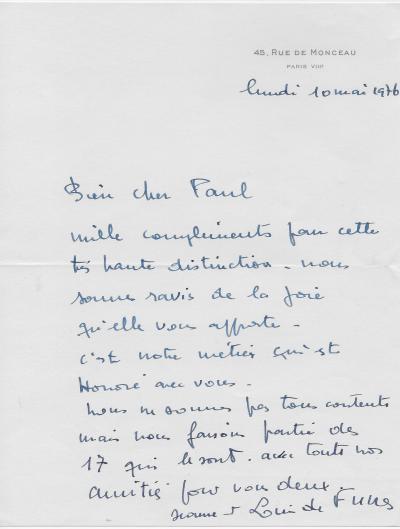 45, RUE DE MONCEAU
PARIS VIIIe
lundi 10 mai 1976
Bien cher Paul
mille compliments pour cette
très haute distinction - nous
sommes ravis de la joie
qu'elle vous apporte -
c'est notre métier qui est
Honoré avec vous -
nous ne sommes pas tous contents
mais nous faisons partie des
17 qui le sont. avec toute nos
amitiés pour vous deux.
Jeanne et Louis de Funes